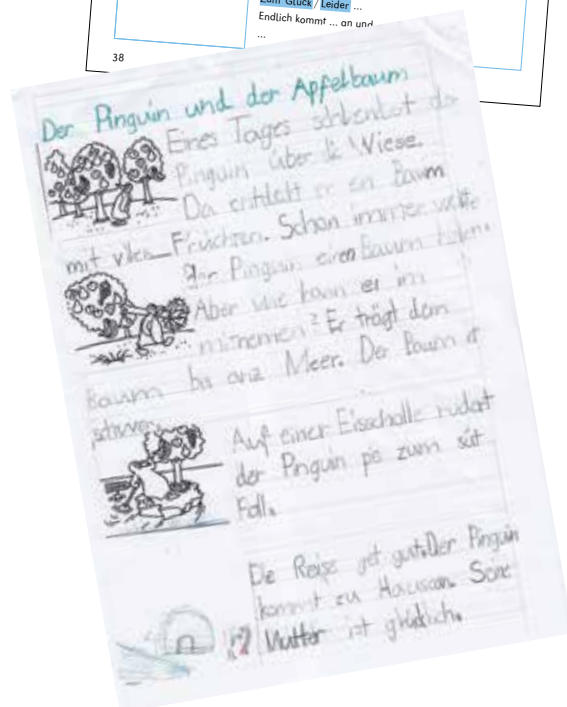 Zum Glück / Leider ...
Endlich kommt ... an und
...
38
Der Pinguin und der Apfelbaum
Eines Tages schlentat da
Pinguin über di Wiese.
Da entdekt er en Baum
mit vilen Früchten. Schon immer wolte
der Pinguin einen Bauum haben.
Aber wie kann er im
mitnemen? Er trägt dem
Bauum bis anz Meer. Der Baum it
schwer.
Auf einer Eisscholle rudat
der Pinguin pis zum süt
Foll.
De Reise get gut. Der Pinguin
kommst zu Hauscan. Seine
Mutter ist glücklich.